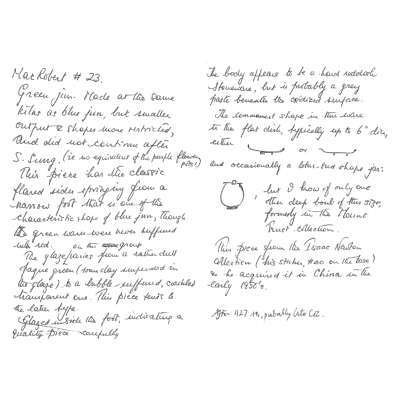 MacRobert # 23.
Green jun. Made at the same
kilns as blue jun, but smaller
output & shapes more restricted,
and did not continue after
S. Sung. (ie no equivalent of the purple flower pots!)
This piece has the classic
flared sides springing from a
narrow foot that is one of the
characteristic shape of blue jun, though
the green ware were never suffused
with red. on the group
The glaze varies from a rather dull
opaque green (some clay suspensed in
the glaze) to a bubble suffused, crackled
transparent one. This piece tends to
the later type.
Glazed inside the foot, indicating a
quality piece carefully
The body appears to be a hard reddish
stoneware, but is probably a grey
paste beneath the oxidised surface.
The commonest shape in this ware
is the flat dish, typically up to 6" dia,
either or
and occasionally a lotus-bud shape jar:
, but I know of only one
other deep bowl of this size,
formerly in the Mount
Trust collection.
This piece from the Isaac Newton
Collection (his sticker, #20 on the base)
so he acquired it in China in the
early 1950's.
After 1127 AD, probably late C12.